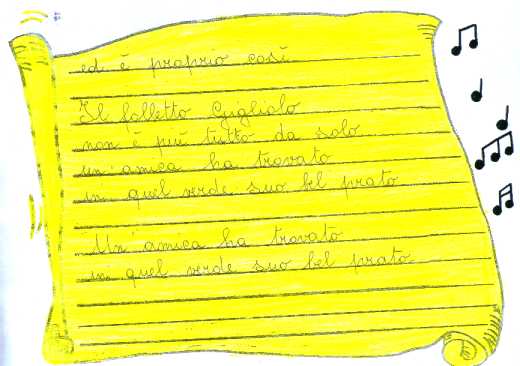 ed è proprio così
Il folletto Gigliolo
non è più tutto da solo
un'amica ha trovato
in quel verde suo bel prato
Un'amica ha trovato
in quel verde suo bel prato